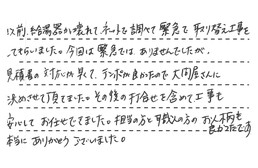 以前、給湯器が壊れてネットで調べて緊急で取り替え工事を
してもらいました。今回は緊急では、ありませんでしたが、
見積書の対応が早くて、テンポが良かたので大同屋さんに
決めさせて頂てました。その後の打合せを含めて工事も
安心してお任せできました。担当の方と 数人の方のお人柄も
良かったです
本当にありがとうございました。